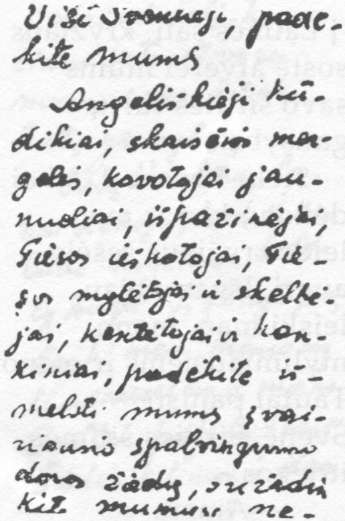 Visi Šventieji, pade-
kite mums
Angeliškieji kū-
dikiai, skaisčios mer-
gelės, kovotojai jau-
nuoliai, išpažinėjai,
Tiesos ieškotojai, Tie-
sos mylėtojai ir skelbė-
jai, kentėtojai ir kan-
kiniai, padėkite iš-
melsti mums įvai-
riausio spalvingumo
doros žiedų,
kite mumus ne-